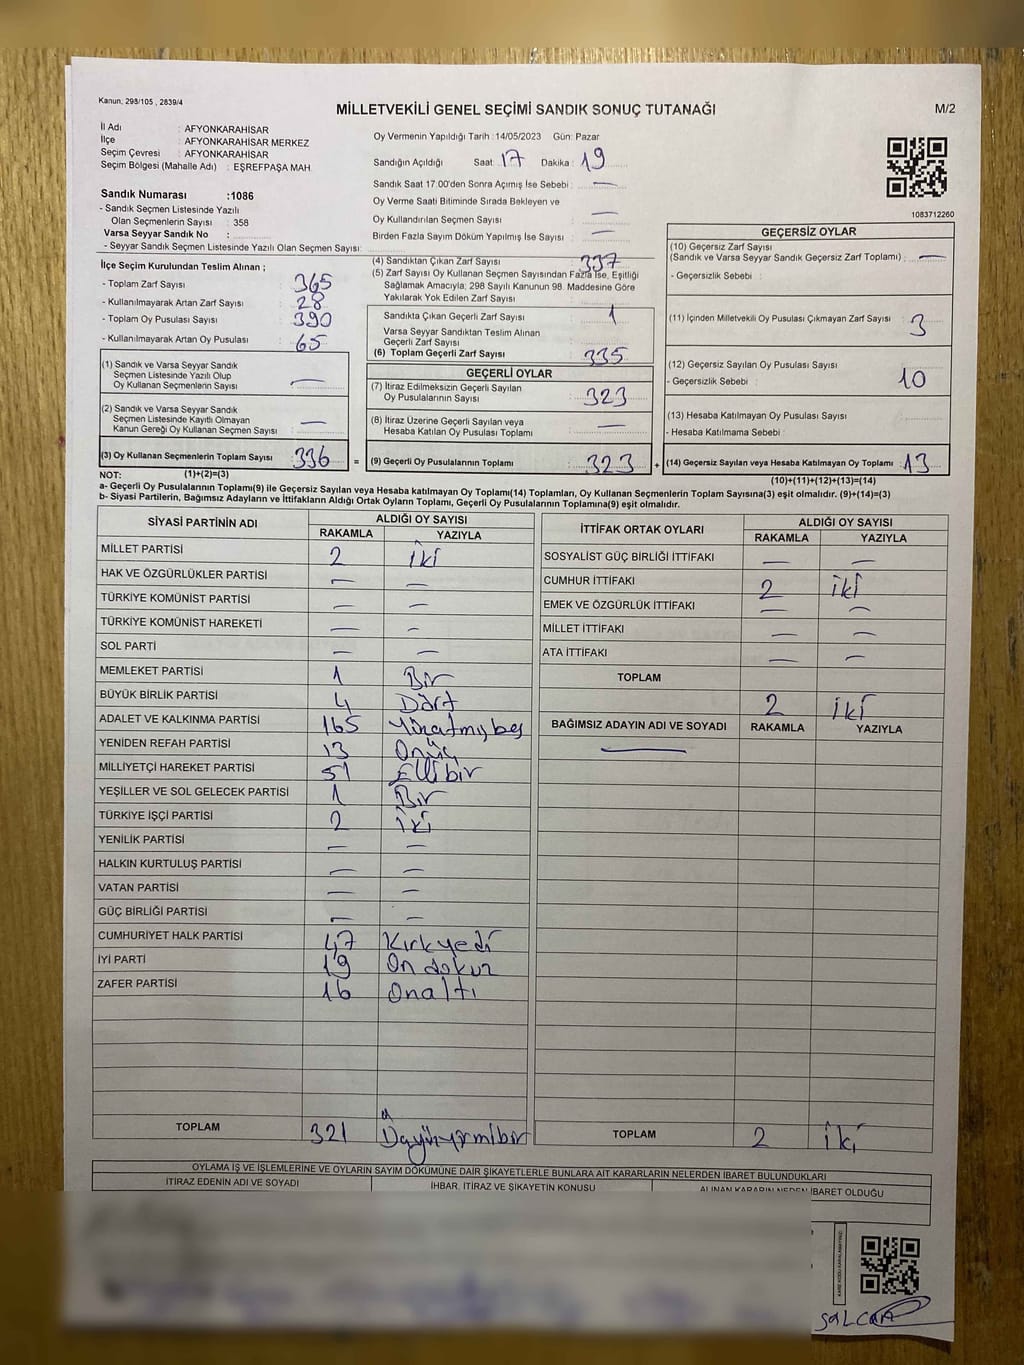 Kanun, 298/105 , 2839/4
MİLLETVEKİLİ GENEL SEÇİMİ SANDIK SONUÇ TUTANAĞI
M/2
İl Adı : AFYONKARAHİSAR
İlçe : AFYONKARAHİSAR MERKEZ
Seçim Çevresi : AFYONKARAHİSAR
Seçim Bölgesi (Mahalle Adı) : EŞREFPAŞA MAH
Sandık Numarası :1086
- Sandık Seçmen Listesinde Yazılı
Olan Seçmenlerin Sayısı : 358
Varsa Seyyar Sandık No :
- Seyyar Sandık Seçmen Listesinde Yazılı Olan Seçmen Sayısı:
Oy Vermenin Yapıldığı Tarih : 14/05/2023 Gün: Pazar
Sandığın Açıldığı Saat : 17 Dakika : 19
Sandık Saat 17:00'den Sonra Açımış İse Sebebi : —
Oy Verme Saati Bitiminde Sırada Bekleyen ve
Oy Kullandırılan Seçmen Sayısı : —
Birden Fazla Sayım Döküm Yapılmış İse Sayısı : —
1083712260
İlçe Seçim Kurulundan Teslim Alınan ;
- Toplam Zarf Sayısı : 365
- Kullanılmayarak Artan Zarf Sayısı : 28
- Toplam Oy Pusulası Sayısı : 390
- Kullanılmayarak Artan Oy Pusulası : 65
(1) Sandık ve Varsa Seyyar Sandık
Seçmen Listesinde Yazılı Olup
Oy Kullanan Seçmenlerin Sayısı : —
(2) Sandık ve Varsa Seyyar Sandık
Seçmen Listesinde Kayıtlı Olmayan
Kanun Gereği Oy Kullanan Seçmen Sayısı : —
(3) Oy Kullanan Seçmenlerin Toplam Sayısı : 336 =
(4) Sandıktan Çıkan Zarf Sayısı : 337
(5) Zarf Sayısı Oy Kullanan Seçmen Sayısından Fazla İse, Eşitliği
Sağlamak Amacıyla; 298 Sayılı Kanunun 98. Maddesine Göre
Yakılarak Yok Edilen Zarf Sayısı :
Sandıkta Çıkan Geçerli Zarf Sayısı : 1
Varsa Seyyar Sandıktan Teslim Alınan
Geçerli Zarf Sayısı :
(6) Toplam Geçerli Zarf Sayısı : 335
GEÇERLİ OYLAR
(7) İtiraz Edilmeksizin Geçerli Sayılan
Oy Pusulalarının Sayısı : 323
(8) İtiraz Üzerine Geçerli Sayılan veya
Hesaba Katılan Oy Pusulası Toplamı : —
(9) Geçerli Oy Pusulalarının Toplamı : 323 +
GEÇERSİZ OYLAR
(10) Geçersiz Zarf Sayısı
(Sandık ve Varsa Seyyar Sandık Geçersiz Zarf Toplamı) : —
- Geçersizlik Sebebi :
(11) İçinden Milletvekili Oy Pusulası Çıkmayan Zarf Sayısı : 3
(12) Geçersiz Sayılan Oy Pusulası Sayısı : 10
- Geçersizlik Sebebi :
(13) Hesaba Katılmayan Oy Pusulası Sayısı :
- Hesaba Katılmama Sebebi :
(14) Geçersiz Sayılan veya Hesaba Katılmayan Oy Toplamı : 13
NOT: (1)+(2)=(3)
(10)+(11)+(12)+(13)=(14)
a- Geçerli Oy Pusulalarının Toplamı(9) ile Geçersiz Sayılan veya Hesaba katılmayan Oy Toplamı(14) Toplamları, Oy Kullanan Seçmenlerin Toplam Sayısına(3) eşit olmalıdır. (9)+(14)=(3)
b- Siyasi Partilerin, Bağımsız Adayların ve İttifakların Aldığı Ortak Oyların Toplamı, Geçerli Oy Pusulalarının Toplamına(9) eşit olmalıdır.
SİYASİ PARTİNİN ADI ALDIĞI OY SAYISI
RAKAMLA YAZIYLA
MİLLET PARTİSİ 2 iki
HAK VE ÖZGÜRLÜKLER PARTİSİ — —
TÜRKİYE KOMÜNİST PARTİSİ — —
TÜRKİYE KOMÜNİST HAREKETİ — —
SOL PARTİ — —
MEMLEKET PARTİSİ 1 Bir
BÜYÜK BİRLİK PARTİSİ 4 Dört
ADALET VE KALKINMA PARTİSİ 165 Yüzatmışbeş
YENİDEN REFAH PARTİSİ 13 Onüç
MİLLİYETÇİ HAREKET PARTİSİ 51 Ellibir
YEŞİLLER VE SOL GELECEK PARTİSİ 1 Bir
TÜRKİYE İŞÇİ PARTİSİ 2 iki
YENİLİK PARTİSİ — —
HALKIN KURTULUŞ PARTİSİ — —
VATAN PARTİSİ — —
GÜÇ BİRLİĞİ PARTİSİ — —
CUMHURİYET HALK PARTİSİ 47 Kırkyedi
İYİ PARTİ 19 On dokuz
ZAFER PARTİSİ 16 Onaltı
TOPLAM 321
İTTİFAK ORTAK OYLARI ALDIĞI OY SAYISI
RAKAMLA YAZIYLA
SOSYALİST GÜÇ BİRLİĞİ İTTİFAKI — —
CUMHUR İTTİFAKI 2 iki
EMEK VE ÖZGÜRLÜK İTTİFAKI — —
MİLLET İTTİFAKI — —
ATA İTTİFAKI — —
TOPLAM 2 iki
BAĞIMSIZ ADAYIN ADI VE SOYADI RAKAMLA YAZIYLA
—
TOPLAM 2 iki
OYLAMA İŞ VE İŞLEMLERİNE VE OYLARIN SAYIM DÖKÜMÜNE DAİR ŞİKAYETLERLE BUNLARA AİT KARARLARIN NELERDEN İBARET BULUNDUKLARI
İTİRAZ EDENİN ADI VE SOYADI İHBAR, İTİRAZ VE ŞİKAYETİN KONUSU ALINAN KARARIN NEDEN İBARET OLDUĞU